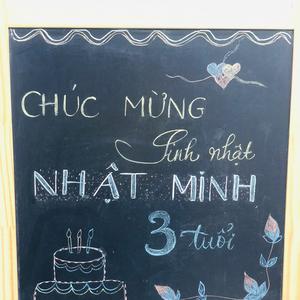 CHÚC MỪNG
Sinh nhật
NHẬT MINH
3 tuổi